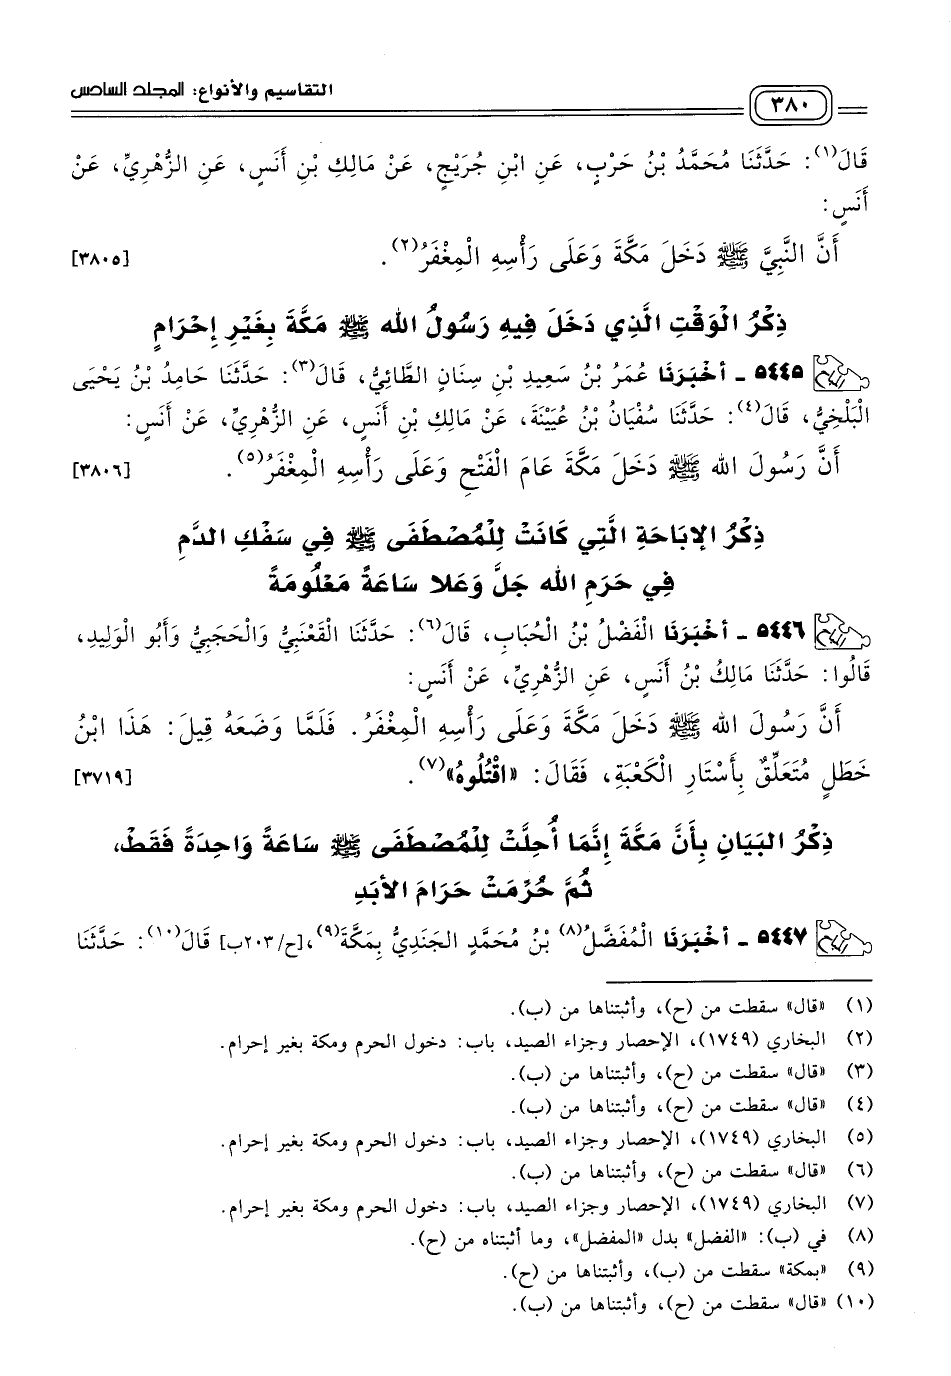 التقاسيم والأنواع: المجلد السادس
٣٨٠
قَالَ(١): حَدَّثَنَا مُحَمَّدُ بْنُ حَرْبٍ، عَنِ ابْنِ جُرَيْجٍ، عَنْ مَالِكِ بْنِ أَنَسٍ، عَنِ الزُّهْرِيِّ، عَنْ
أَنَسٍ:
أَنَّ النَّبِيَّ ﷺ دَخَلَ مَكَّةَ وَعَلَى رَأْسِهِ الْمِغْفَرُ(٢). [٣٨٠٥]
ذِكْرُ الْوَقْتِ الَّذِي دَخَلَ فِيهِ رَسُولُ الله ﷺ مَكَّةَ بِغَيْرِ إِحْرَامٍ
٥٤٤٥ - أَخْبَرَنَا عُمَرُ بْنُ سَعِيدِ بْنِ سِنَانٍ الطَّائِيُّ، قَالَ(٣): حَدَّثَنَا حَامِدُ بْنُ يَحْيَى
الْبَلْخِيُّ، قَالَ(٤): حَدَّثَنَا سُفْيَانُ بْنُ عُيَيْنَةَ، عَنْ مَالِكِ بْنِ أَنَسٍ، عَنِ الزُّهْرِيِّ، عَنْ أَنَسٍ:
أَنَّ رَسُولَ الله ﷺ دَخَلَ مَكَّةَ عَامَ الْفَتْحِ وَعَلَى رَأْسِهِ الْمِغْفَرُ(٥). [٣٨٠٦]
ذِكْرُ الإِبَاحَةِ الَّتِي كَانَتْ لِلْمُصْطَفَى ﷺ فِي سَفْكِ الدَّمِ
فِي حَرَمِ الله جَلَّ وَعَلا سَاعَةً مَعْلُومَةً
٥٤٤٦ - أَخْبَرَنَا الْفَضْلُ بْنُ الْحُبَابِ، قَالَ(٦): حَدَّثَنَا الْقَعْنَبِيُّ وَالْحَجَبِيُّ وَأَبُو الْوَلِيدِ،
قَالُوا: حَدَّثَنَا مَالِكُ بْنُ أَنَسٍ، عَنِ الزُّهْرِيِّ، عَنْ أَنَسٍ:
أَنَّ رَسُولَ الله ﷺ دَخَلَ مَكَّةَ وَعَلَى رَأْسِهِ الْمِغْفَرُ. فَلَمَّا وَضَعَهُ قِيلَ: هَذَا ابْنُ
خَطَلٍ مُتَعَلِّقٌ بِأَسْتَارِ الْكَعْبَةِ، فَقَالَ: «اقْتُلُوهُ»(٧). [٣٧١٩]
ذِكْرُ البَيَانِ بِأَنَّ مَكَّةَ إِنَّمَا أُحِلَّتْ لِلْمُصْطَفَى ﷺ سَاعَةً وَاحِدَةً فَقَطْ،
ثُمَّ حُرِّمَتْ حَرَامَ الأَبَدِ
٥٤٤٧ - أَخْبَرَنَا الْمُفَضَّلُ(٨) بْنُ مُحَمَّدٍ الجَنَدِيُّ بِمَكَّةَ(٩)، [ح/٢٠٣ب] قَالَ(١٠): حَدَّثَنَا
(١) «قال» سقطت من (ح)، وأثبتناها من (ب).
(٢) البخاري (١٧٤٩)، الإحصار وجزاء الصيد، باب: دخول الحرم ومكة بغير إحرام.
(٣) «قال» سقطت من (ح)، وأثبتناها من (ب).
(٤) «قال» سقطت من (ح)، وأثبتناها من (ب).
(٥) البخاري (١٧٤٩)، الإحصار وجزاء الصيد، باب: دخول الحرم ومكة بغير إحرام.
(٦) «قال» سقطت من (ح)، وأثبتناها من (ب).
(٧) البخاري (١٧٤٩)، الإحصار وجزاء الصيد، باب: دخول الحرم ومكة بغير إحرام.
(٨) في (ب): «الفضل» بدل «المفضل»، وما أثبتناه من (ح).
(٩) «بمكة» سقطت من (ب)، وأثبتناها من (ح).
(١٠) «قال» سقطت من (ح)، وأثبتناها من (ب).